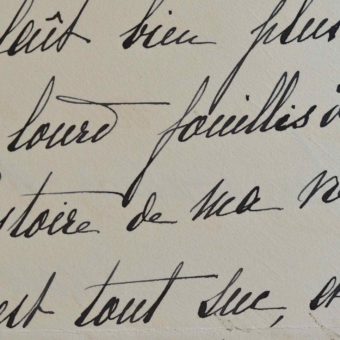 plaût bien plus
lourd fouillis
stoire de ma
est tout suc, et